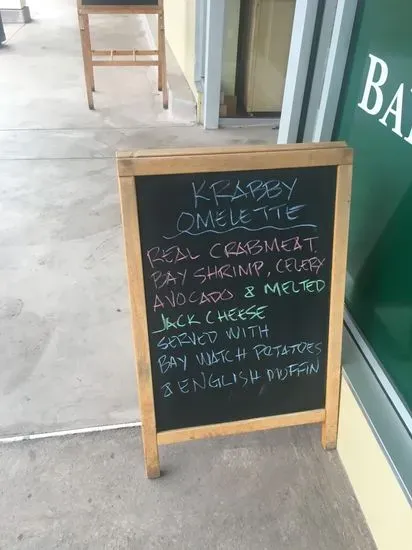 KRABBY
OMELETTE
REAL CRABMEAT
BAY SHRIMP, CELERY
AVOCADO & MELTED
JACK CHEESE
SERVED WITH
BAY WATCH POTATOES
& ENGLISH MUFFIN
BA